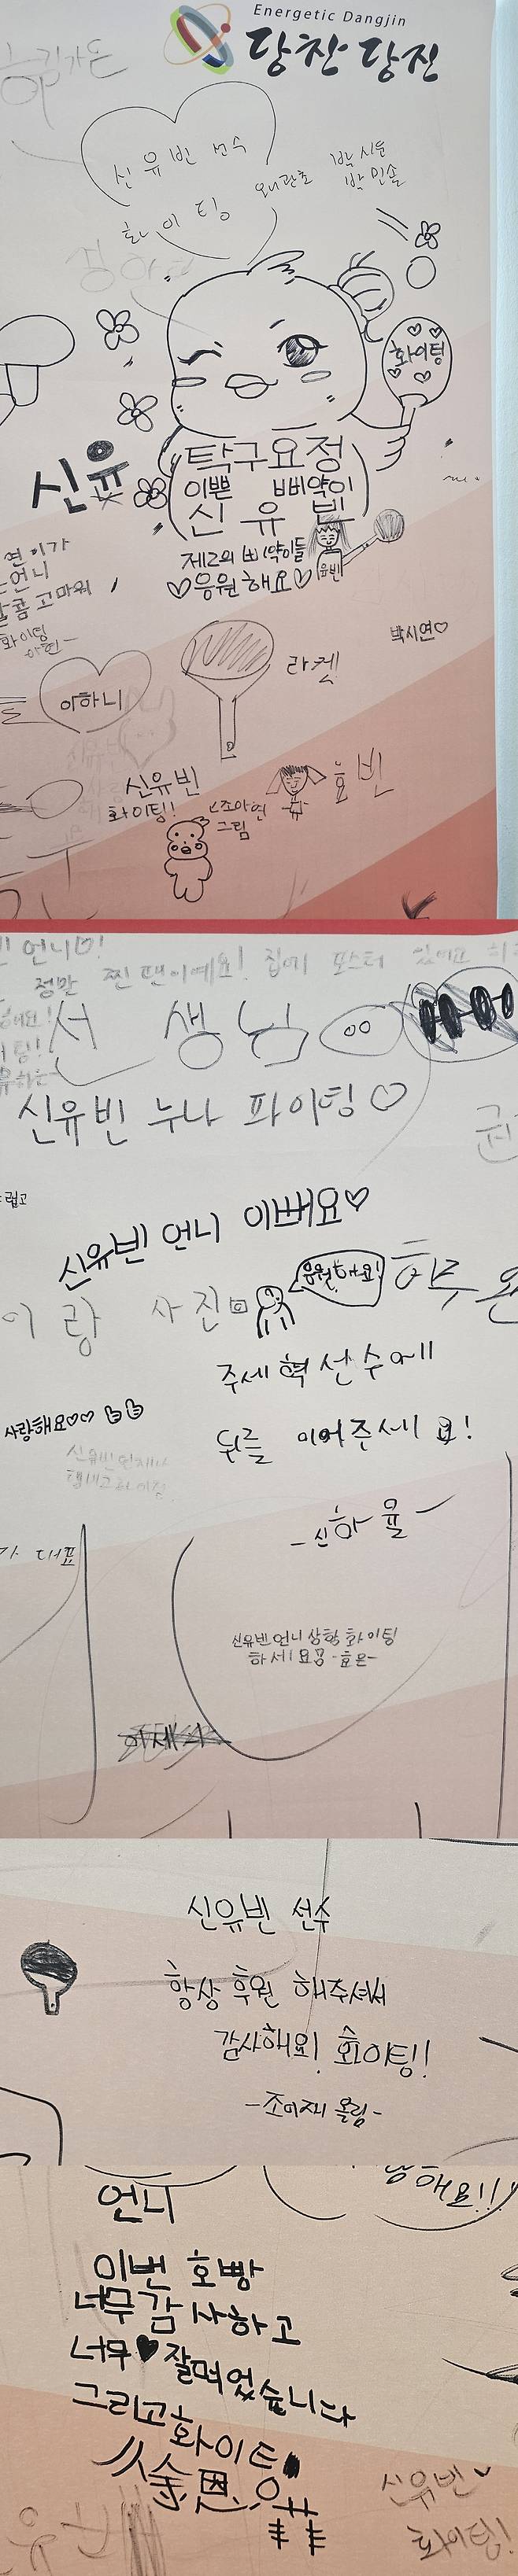 Energetic Dangjin
당찬 당진
신유빈 선수
화이팅
박시은
박민솔
화이팅
탁구요정
이쁜 삐약이
신유빈
신유
제2의 삐약이들
♡응원해요♡
유빈
연이가
언니
콤 고마워
화이팅
박시연♡
라켓
아하니
신유빈
화이팅!!
조아연
그림
효빈
언니
정말 찐팬이예요! 집에 포스터 있어요
선생님
신유빈 누나 파이팅♡
신유빈 언니 이뻐요♡
이랑 사진
응원해요!
하루
주세혁 선수에
뒤를 이어주세요!
사랑해요♡♡
-신하율-
대표
신유빈언니 상항 화이팅
하세요 -효은-
신유빈 선수
항상 후원 해주셔서
감사해요! 화이팅!!
-조이재 올림-
해요!!
언니
이번 호빵
너무 감사하고
너무♥잘먹었습니다
그리고 화이팅
신유빈
화이팅!